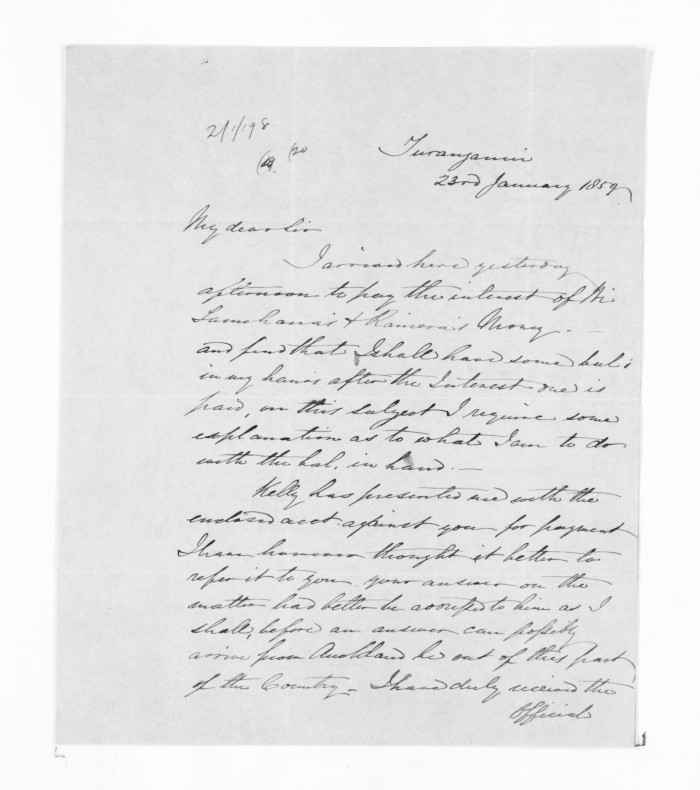 2/1/198
20
23rd January 1857
My dear Sir
I arrived here yesterday
afternoon to pay the interest of
& Raniera's Money. —
and find that I shall have some bal:
in my hands after the Interest due is
paid, on this subject I require some
explanation as to what I am to do
with the bal. in hand. —
Kelly has presented me with the
enclosed acct. against you for payment
I have however thought it better to
refer it to you. your answer on the
matter had better be addressed to him as I
shall, before an answer can possibly
arrive from Auckland be out of this part
of the Country — I have duly received the
Official